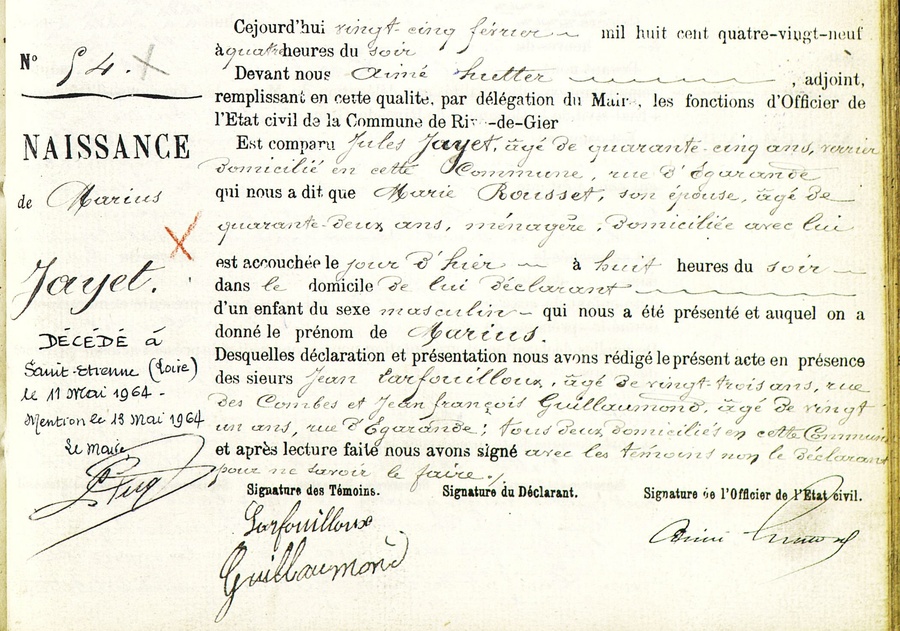 N° 54.
NAISSANCE
de Marius
Jayet.
DÉCÉDÉ à
Saint-Etienne (Loire)
le 11 Mai 1964-
Mention le 13 Mai 1964
Le Maire
Cejourd'hui vingt-cinq février mil huit cent quatre-vingt-neuf
à quatre heures du soir
Devant nous Aimé , adjoint,
remplissant en cette qualité, par délégation du Maire, les fonctions d'Officier de
l'Etat civil de la Commune de Rive-de-Gier
Est comparu Jules Jayet, âgé de quarante-cinq ans, verrier
domicilié en cette Commune, rue d'Egarande
qui nous a dit que Marie Rousset, son épouse, âgé de
quarante-deux ans, ménagère, domiciliée avec lui
est accouchée le jour d'hier à huit heures du soir
dans le domicile de lui déclarant
d'un enfant du sexe masculin - qui nous a été présenté et auquel on a
donné le prénom de Marius.
Desquelles déclaration et présentation nous avons rédigé le présent acte en présence
des sieurs Jean Larfouilloux, âgé de vingt-trois ans, rue
des Combes et Jean françois Guillaumond, âgé de vingt
un ans, rue d'Egarande; tous deux domiciliés en cette Commune
et après lecture faite nous avons signé avec les témoins non le déclarant
pour ne savoir le faire./.
Signature des Témoins. Signature du Déclarant. Signature de l'Officier de l'Etat civil.
Larfouilloux
Guillaumond
Aimé